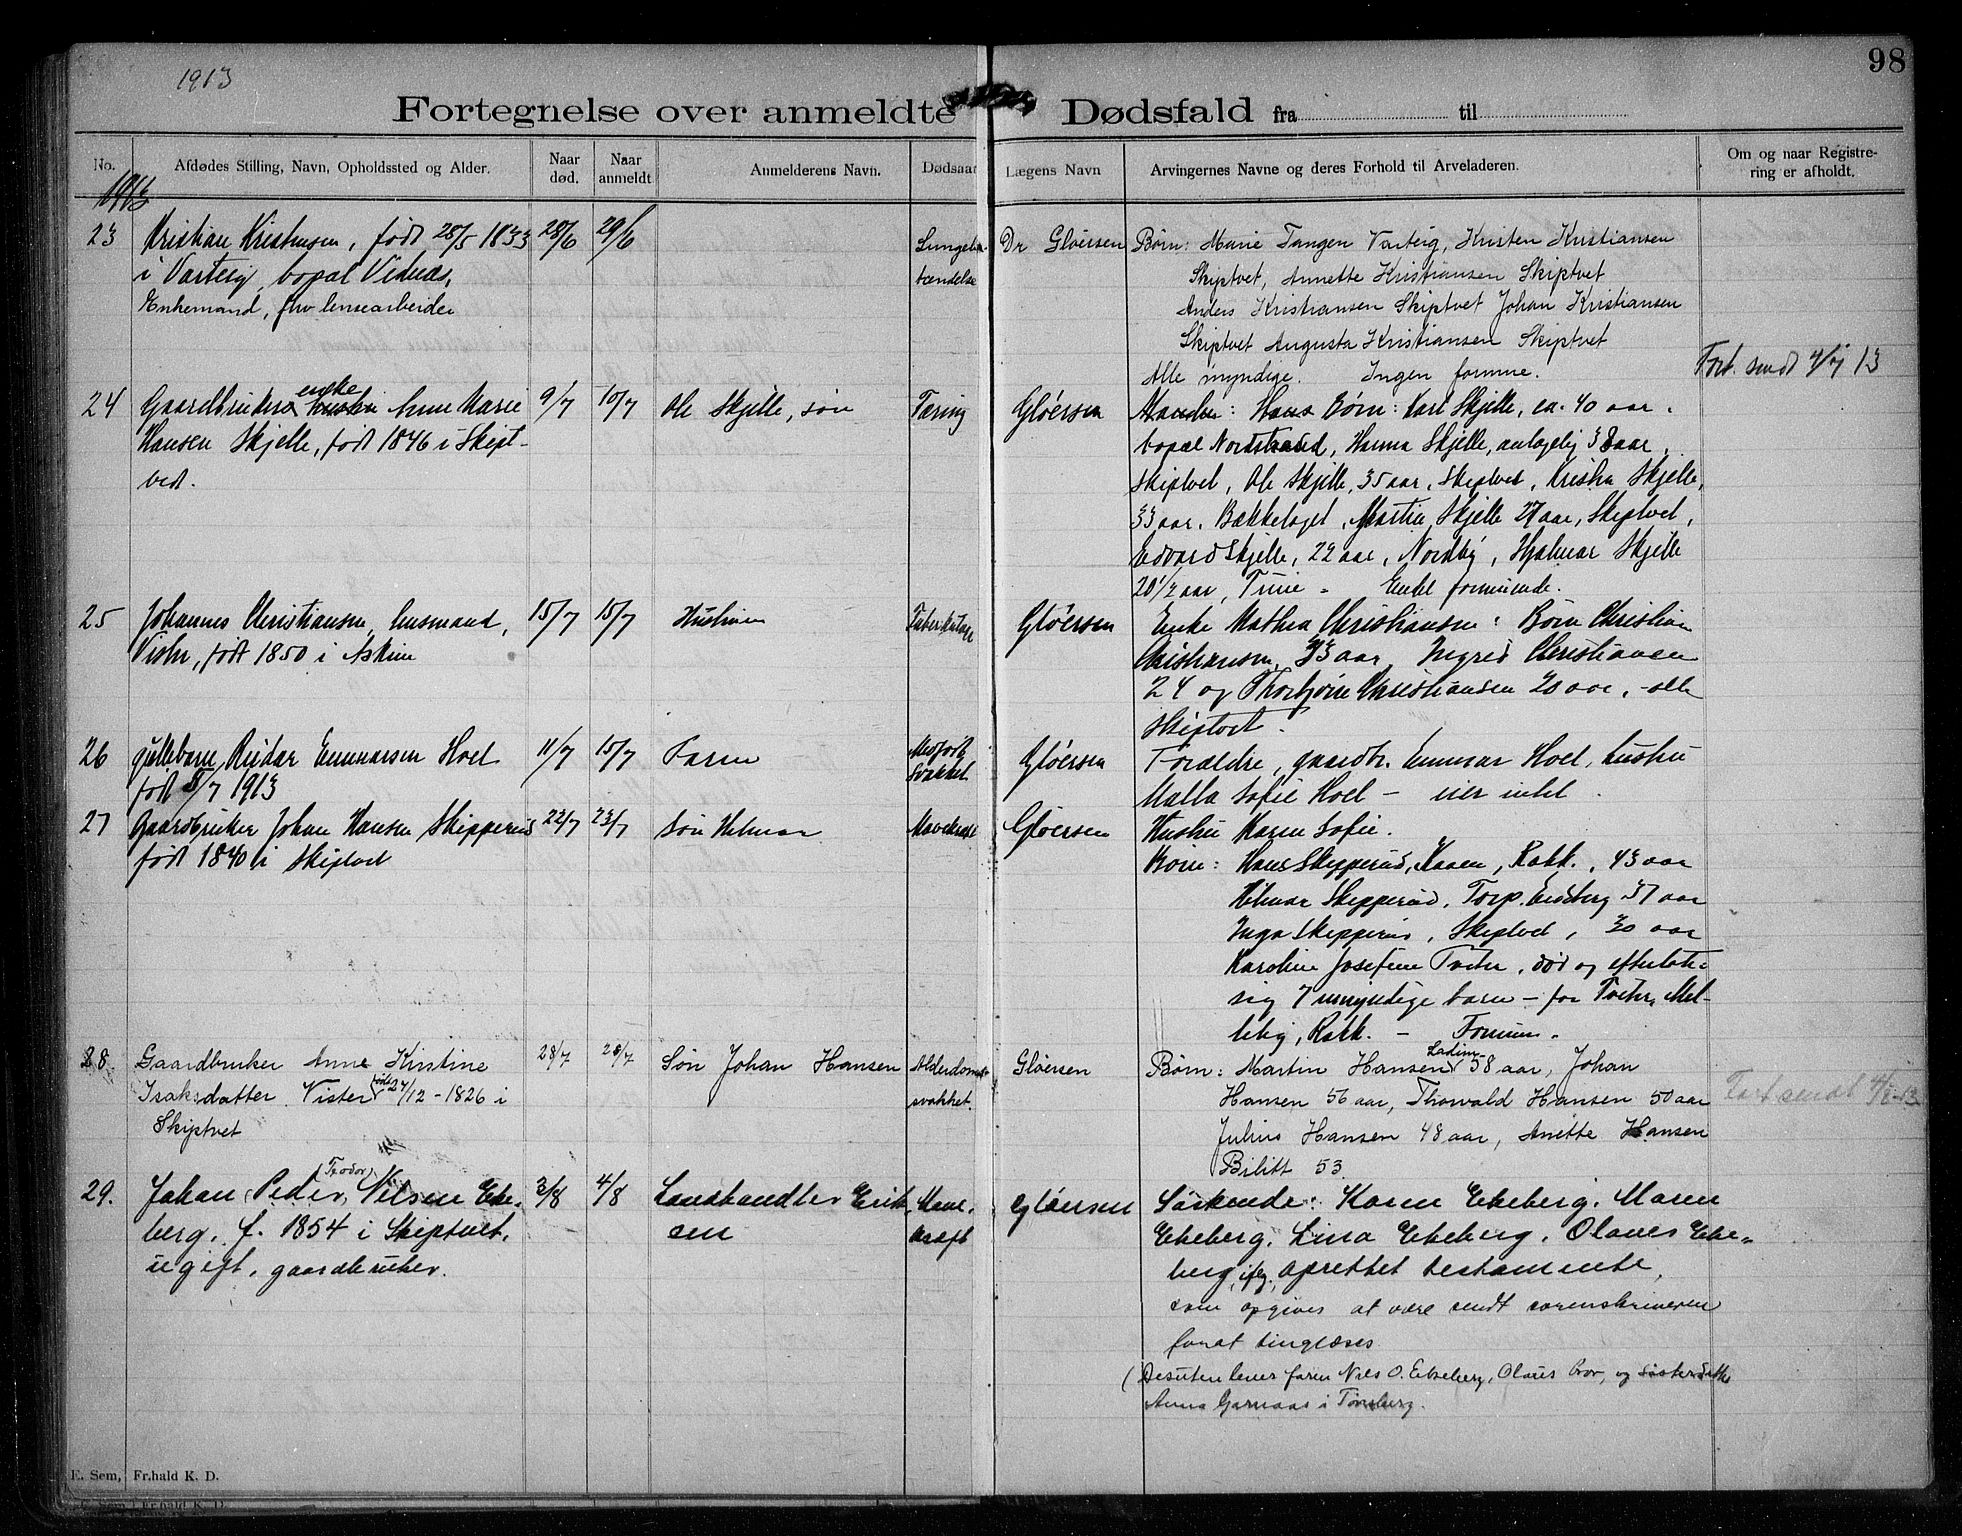 1913
98
Fortegnelse over anmeldte Dødsfald fra til
No.
Afdødes Stilling, Navn, Opholdssted og Alder.
Naar død.
Naar anmeldt
Anmelderens Navn.
Dødsaar
Lægens Navn
Arvingernes Navne og deres Forhold til Arveladeren.
Om og naar Registre-
ring er afholdt.
1913
23 Kristian Kristensen, født 28/5 1833 28/6 29/6 Dr Gløersen Børn: Marie Tangen Varteig, Kristen Kristiansen
i Varteig, bopæl Vidnes, tændelse Skiptvet, Annette Kristiansen Skiptvet
Enkemand, fhv lensearbeider Anders Kristiansen Skiptvet Johan Kristiansen
Skiptvet Augusta Kristiansen Skiptvet
Alle myndige. Ingen formue. Fort. sendt 4/7 13
24 Gaardbrukerenke Anne Marie 9/7 10/7 Ole Skjelle, søn Tæring Gløersen Børn: Karl Skjelle, ca. 40 aar.
Hansen Skjelle, født 1846 i Skipt- bopæl Nordstrand, Hanna Skjelle, antagelig 38 aar,
vedt. Skiptvet, Ole Skjelle, 35 aar, Skiptvet, Skjelle,
33 aar, Bækkelaget, Martin Skjelle 27 aar, Skiptvet,
Edvard Skjelle, 22 aar, Nordby, Hjalmar Skjelle
20 1/2 aar, Tune. Enkel formuende.
25 Johannes Christiansen, husmand, 15/7 15/7 Hustruen Tuberkulose Gløersen Enke Mathea Christiansen: Børn Christian
født 1850 i Askim Christiansen, 33 aar, Ingrid Christiansen
24 og Thorbjørn Christiansen 20 aar, - alle
Skiptvet.
26 pikebarn Reidar Emmarsen Hoel 11/7 15/7 Faren Medfødt Gløersen Forældre, gaardbr. Hoel, hustru
født 8/7 1913 svakhet Malla Sofie Hoel – eier intet.
27 Gaardbruker Johan Hansen Skipperud 22/7 23/7 Søn Helmar Mavekræft Gløersen Hustru Karen Sofie.
født 1840 i Skiptvet Børn: Hans Skipperud, Rakk., 43 aar
Helmar Skipperud, Torp. Eidsberg 37 aar
Inga Skipperud, Skiptvet, 30 aar
Karoline Josefine Tveter, død og efterlate
sig 7 umyndige barn – far Tveter, Mel-
leby, Rakk. – Formue.
28 Gaardbruker Anne Kirstine 28/7 28/7 Søn Johan Hansen Alderdoms- Gløersen Børn: Martin Hansen 58 aar, Johan
Isaksdatter Vister født 27/12-1826 i svakhet. Hansen 56 aar, Thorvald Hansen 50 aar Fort sendt 4/8-13
Skiptvet Julius Hansen 48 aar, Anette Hansen
Bilitt 53
29. Johan Peder Teodor Nilsen Eke- 3/8 4/8 Landhandler Erik- Mave- Gløersen Søskende: Karen Ekeberg, Maren
berg, f. 1854 i Skiptvet, sen kræft Ekeberg, Lina Ekeberg, Olaves Eke-
ugift, gaardbruker. berg, ifg. oprettet testamente,
som opgives at være sendt sorenskriveren
forat tinglæses.
(Desuten lever faren Nils O. Ekeberg, Olaus bror, og søsterdatter
Anna Garnaas i Tønsberg.
E. Sem, Fr.hald K. D.